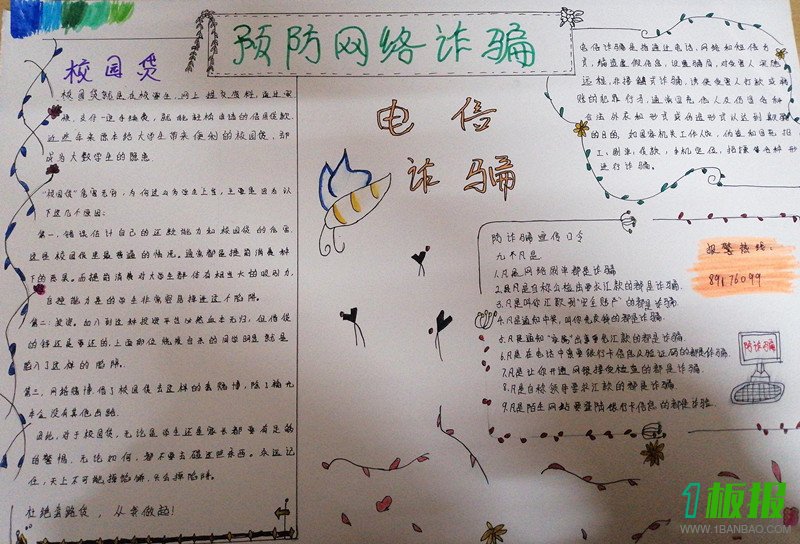 预防网络诈骗
校园贷
校园贷就是在校学生,网上提交资料,通过审
核,支付一定手续费,就能轻松申请的信用贷款
近些年来原本给大学生带来便利的校园贷,却
成为大数学生的隐患
"校园贷"危害无穷,为何这么多学生上当,主要是因为以
下这几个原因:
第一,错误估计自己的还款能力和校园贷的危害,
这是校园贷里最普遍的情况。通常都是提前消费种
下的恶果。而提前消费对大学生群体有相当大的吸引力,
自控能力差的学生非常容易掉进这个陷阱。
陷入了这样的陷阱。
第三,网络赌博,借了校园贷去这样的去赌博,除了输光
本金没有其他出路
因此,对于校园贷,无论是学生还是家长都要有足够
的警惕,无论如何,都不要去碰这些东西。永远记
住,天上不可能掉馅饼,只会掉陷阱。
从我做起!
电信
诈骗
电信诈骗是指通过电话、网络和短信方
式,编造虚假信息,设置骗局,对受害人实施
远程、非接触式诈骗,诱使受害人打款或转
账的犯罪行为,通常冒充他人及仿冒各种
合法外衣和形式或伪造形式以达到欺骗
的目的,如冒充
工、刷单、贷款、手机定位、招嫖等各种形
进行诈骗。
防诈骗宣传口令
九不凡是
1.凡是网络刷单都是诈骗
2.凡是自称公检法要求汇款的都是诈骗.
3.凡是叫你汇款到"安全账户"的都是诈骗
4.凡是通知中奖,叫你先交钱的都是诈骗
5.凡是通知"家属"出事要汇款的都是诈骗
6.凡是在电话中索要银行卡信息及验证码的都是诈骗.
7.凡是让你开通网银接受检查的都是诈骗
8.凡是自称领导要求汇款的都是诈骗.
9.凡是陌生网站要登陆银行卡信息的都是诈骗.
报警热线:
89176099
防诈骗
1板报
WWW.1BANBAO.COM